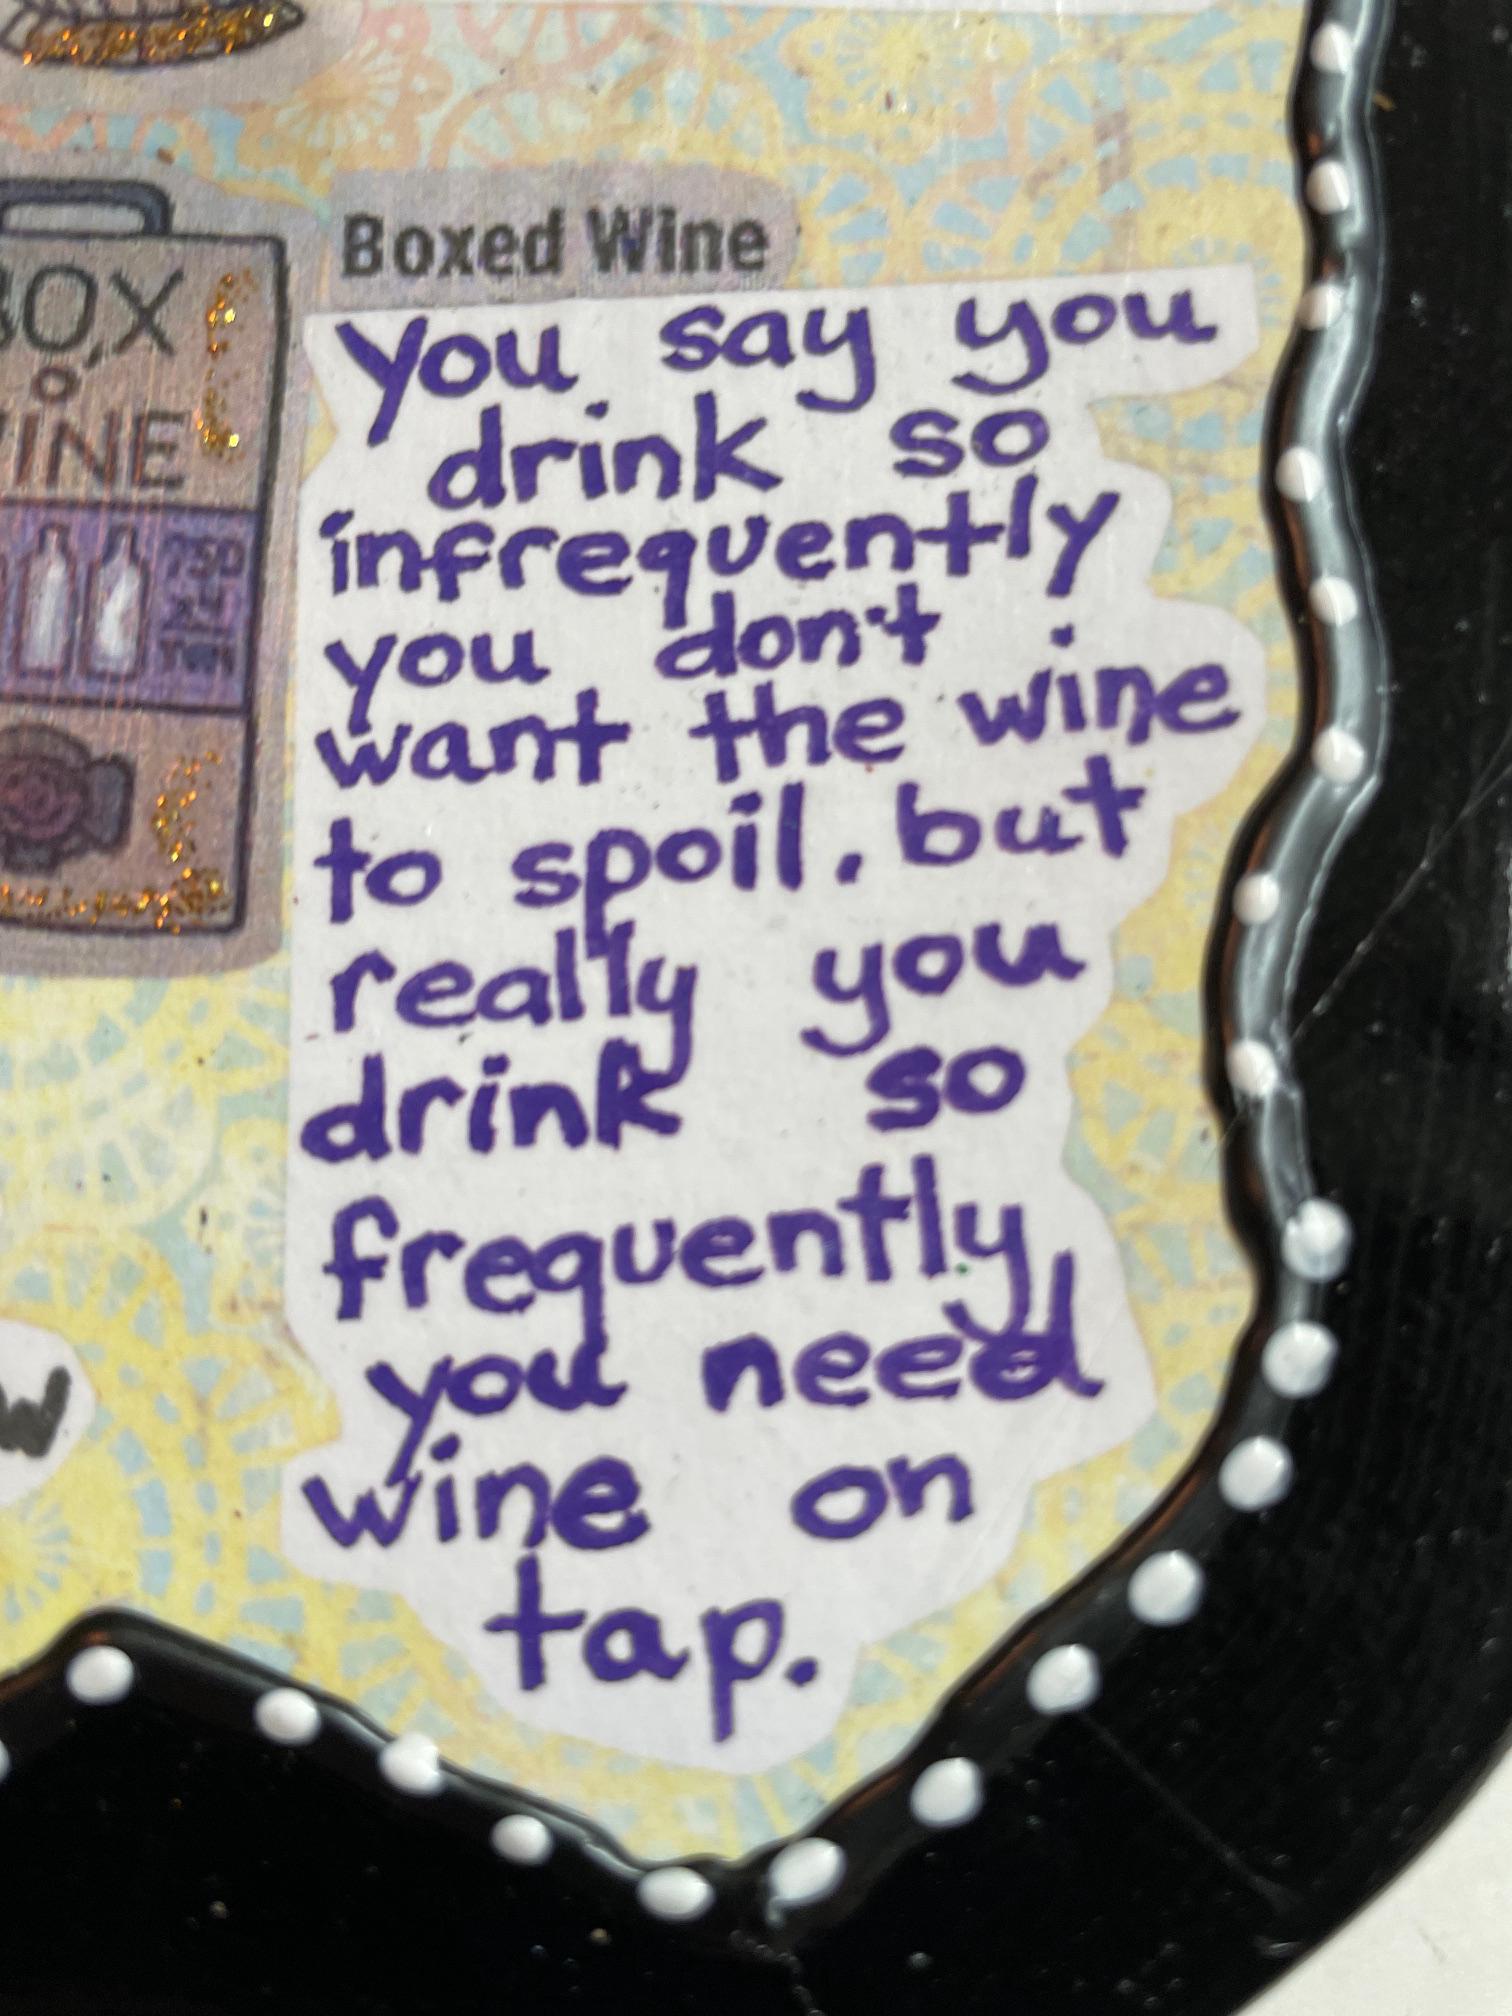 Boxed Wine
You say you
drink so
infrequently
you don't
want the wine
to spoil. but
really you
drink so
frequently
you need
wine on
tap.
BOX
O
WINE
750
X4
W